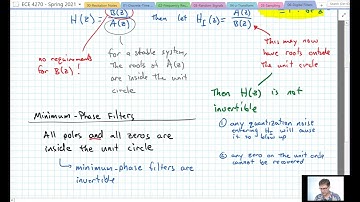 ECE 4270 - Spring 2021
H(z) = B(z) / A(z) then let H_I(z) = A(z) / B(z)
no requirements
for B(z)!
for a stable system,
The roots of A(z)
are inside the unit
circle
This may now
have roots outside
The unit circle
Then H(z) is not
invertible
① any quantization noise
entering H_I will cause
it to blow up
② any zero on the unit circle
cannot be recovered
Minimum-Phase Filters
All poles and all zeros are
inside the unit circle
minimum-phase filters are
invertible